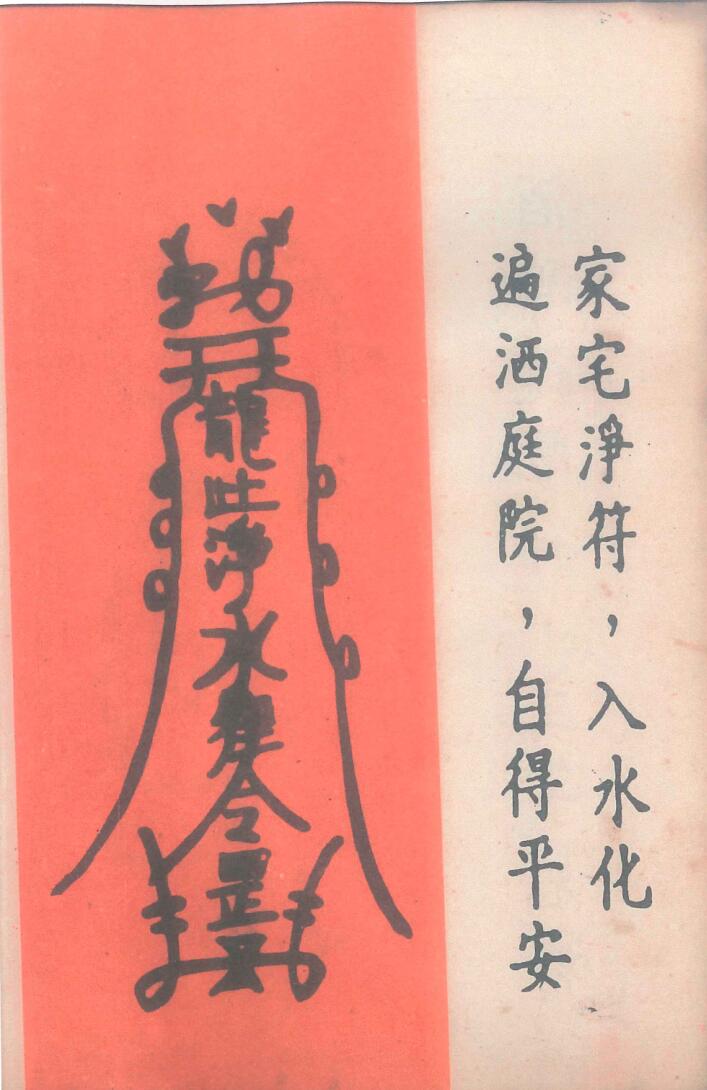 家宅淨符，入水化
遍洒庭院，自得平安
龍吐淨水
令